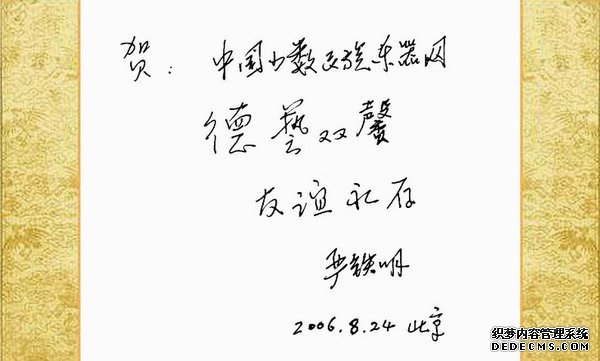 贺: 中国少数民族乐器网
德藝双馨
友谊永存
严铁明
2006.8.24 北京
织梦内容管理系统
DEDECMS.COM